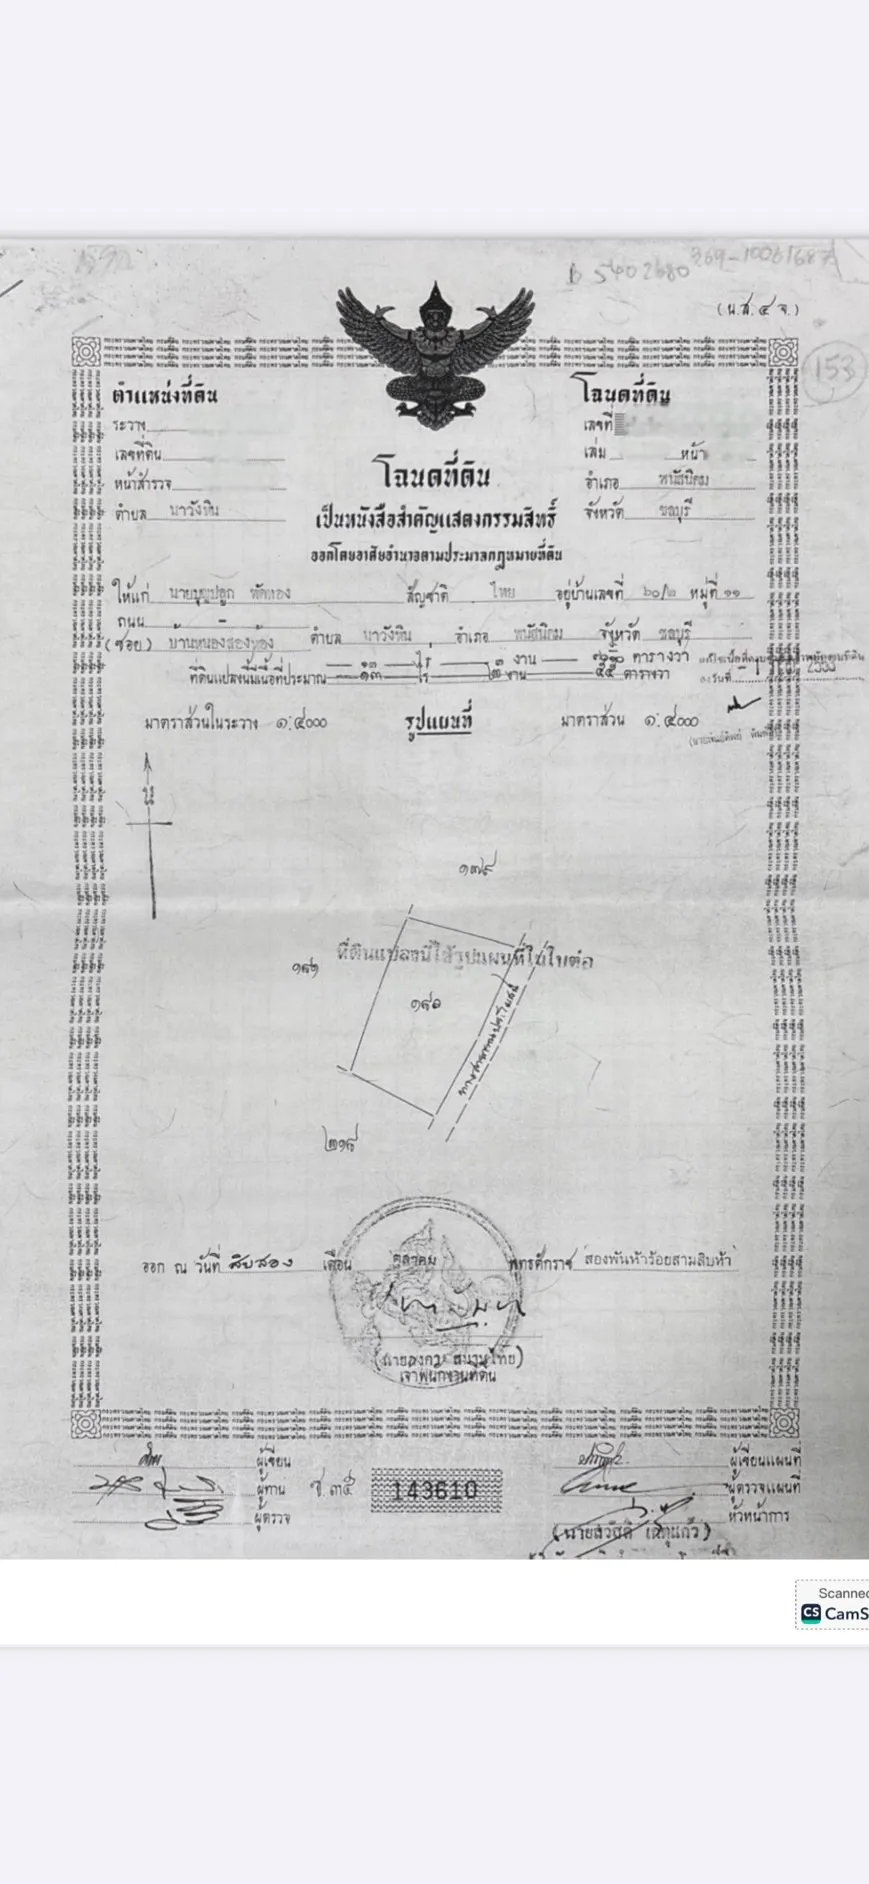 B 5402680
(น.ส.๔ จ.)
153
ตำแหน่งที่ดิน
ระวาง
เลขที่ดิน
หน้าสำรวจ
ตำบล นาวังหิน
โฉนดที่ดิน
เลขที่
เล่ม หน้า
อำเภอ พนัสนิคม
จังหวัด ชลบุรี
โฉนดที่ดิน
เป็นหนังสือสำคัญแสดงกรรมสิทธิ์
ออกโดยอาศัยอำนาจตามประมวลกฎหมายที่ดิน
ให้แก่ นายบุญปลูก พัดทอง สัญชาติ ไทย อยู่บ้านเลขที่ ๖๐/๒ หมู่ที่ ๑๑
ถนน -
(ซอย) บ้านหนองสองห้อง ตำบล นาวังหิน อำเภอ พนัสนิคม จังหวัด ชลบุรี
๑๓ ไร่ ๓ งาน ตารางวา
ที่ดินแปลงนี้มีเนื้อที่ประมาณ ๑๓ ไร่ ๒ งาน ๔๕ ตารางวา
มาตราส่วนในระวาง ๑:๔๐๐๐ รูปแผนที่ มาตราส่วน ๑:๔๐๐๐
๑๗๙
ที่ดินแปลงนี้ใช้รูปแผนที่ในใบต่อ
๑๘๐
ทางสาธารณประโยชน์
๒๑๘
ออก ณ วันที่ สิบสอง เดือน ตุลาคม พุทธศักราช สองพันห้าร้อยสามสิบห้า
เจ้าพนักงานที่ดิน
ผู้เขียน
ผู้ทาน
ผู้ตรวจ
ช.๓๕
143610
ผู้เขียนแผนที่
ผู้ตรวจแผนที่
หัวหน้าการ
Scanned
CS CamS